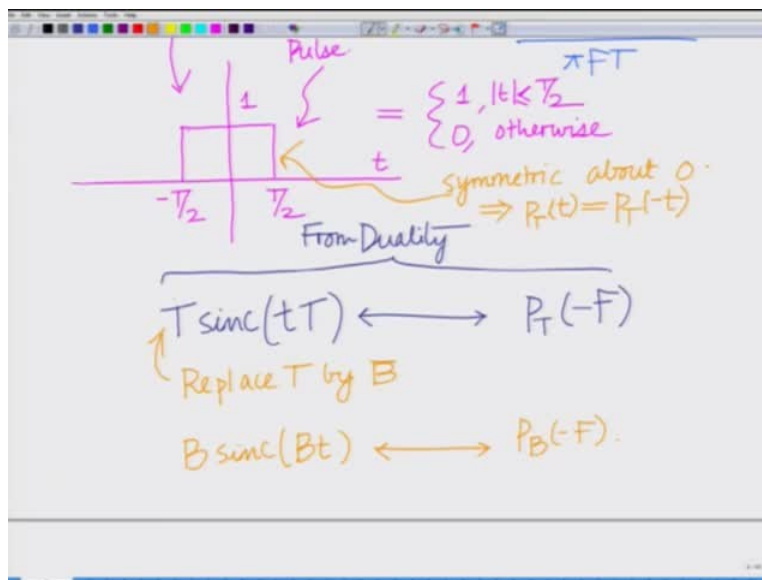 Pulse
πFT
1
= { 1, |t| < T/2
0, otherwise
t
-T/2
T/2
symmetric about 0.
⇒ P_T(t) = P_T(-t)
From Duality
T sinc(tT) ⟷ P_T(-F)
Replace T by B
B sinc(Bt) ⟷ P_B(-F).